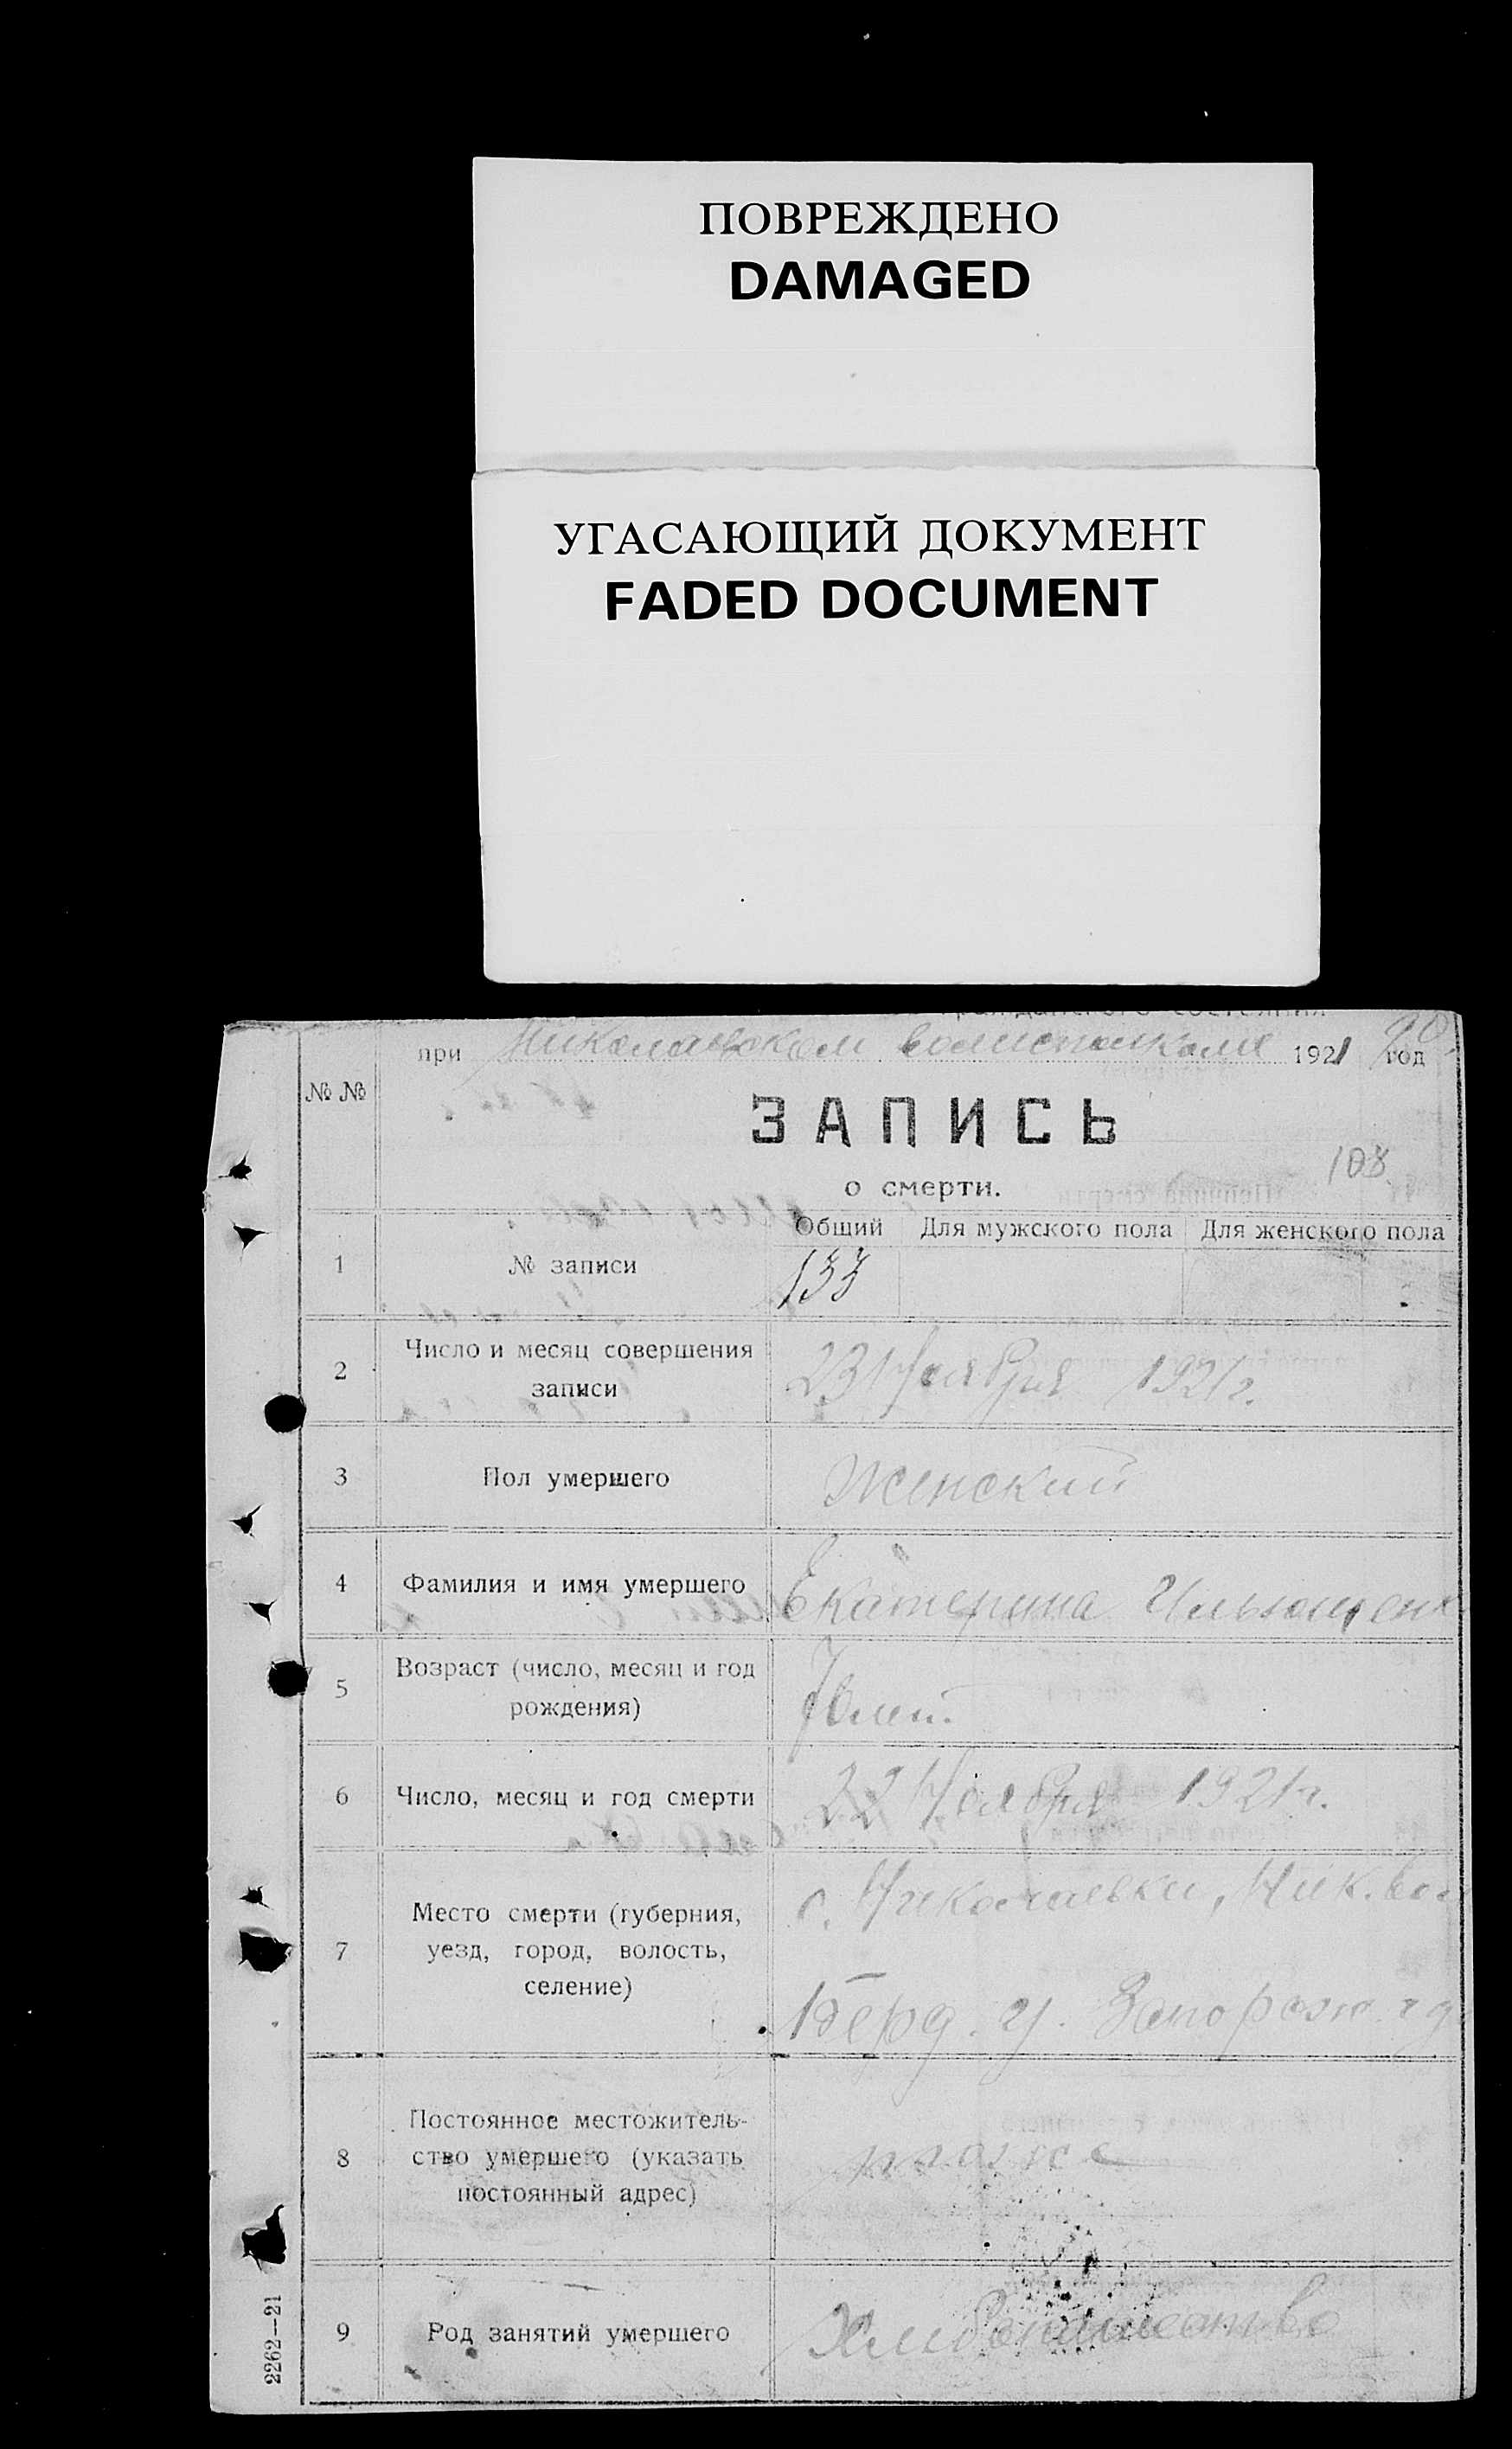 ПОВРЕЖДЕНО
DAMAGED
УГАСАЮЩИЙ ДОКУМЕНТ
FADED DOCUMENT
гражданского состояния
при Николаевском волисполкоме 1921 год
№ №
ЗАПИСЬ
108
о смерти.
Общий Для мужского пола Для женского пола
1 № записи 133
2 Число и месяц совершения
записи
23 Ноября 1921 г.
3 Пол умершего Женский
4 Фамилия и имя умершего Екатерина Ильюшенк
5 Возраст (число, месяц и год
рождения)
лет.
6 Число, месяц и год смерти 22 Ноября 1921 г.
с. Николаевки, Ник. вол
7 Место смерти (губерния,
уезд, город, волость,
селение)
Берд. у. Запорож. г
8 Постоянное местожитель-
ство умершего (указать
постоянный адрес)
тоже
9 Род занятий умершего Хлебопашество
2262—21